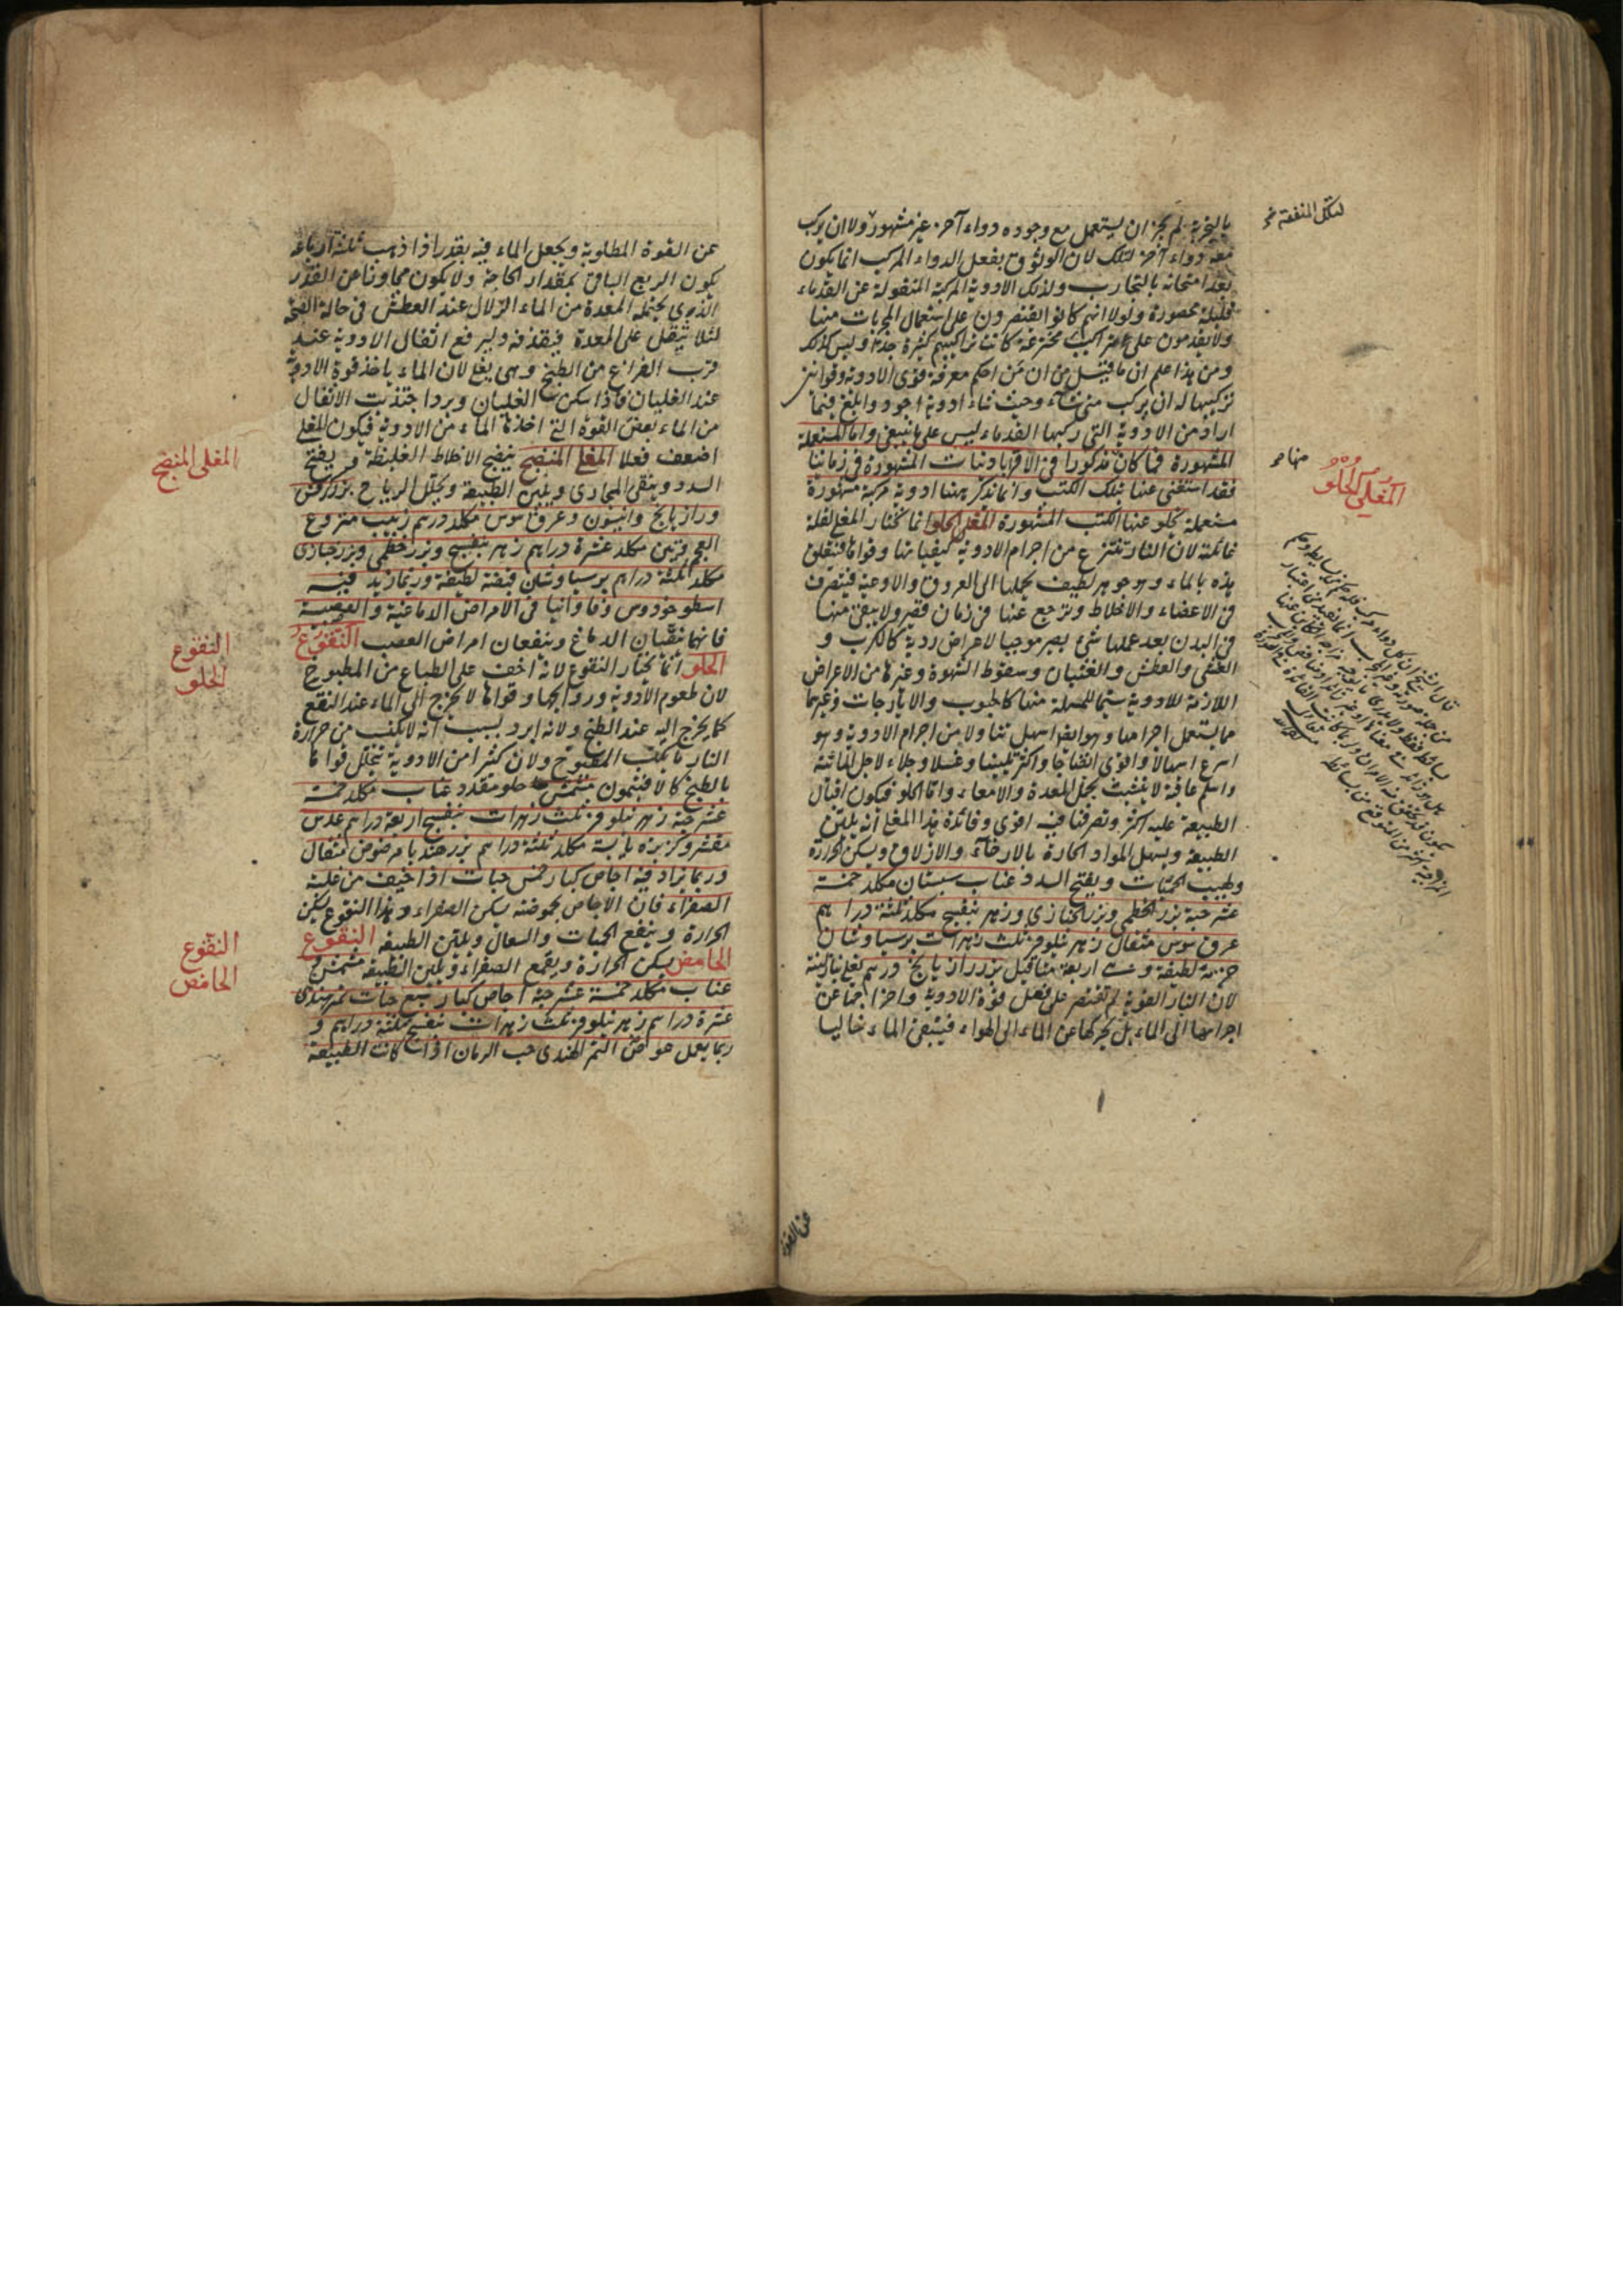 لتلك المنفعة
بالتجربة لم يجز ان يستعمل مع وجوده دواء آخر غير مشهور ولا ان يركب
معه دواء آخر لتلك لان الوثوق بفعل الدواء المركب انما يكون
بعد امتحانه بالتجارب ولذلك الادوية المركبة المنقولة عن القدماء
قليلة محصورة ولولا انهم كانوا يقتصرون على استعمال المجربات منها
ولا يقدمون على تراكيب مخترعة كانت تراكيبهم كثيرة جدا وليس كذلك
ومن هذا علم ان ما قيل من ان من احكم معرفة قوى الادوية وقوانين
تركيبها له ان يركب متى شاء وحيث شاء ادوية اجود وابلغ فيما
اراد من الادوية التي ركبها القدماء ليس على ما ينبغي واما المستعملة
المشهورة فما كان مذكورا في الاقرابادينات المشهورة في زماننا
فقد استغنى عنها بتلك الكتب وانما نذكر ههنا ادوية مركبة مشهورة
مستعملة تخلو عنها الكتب المشهورة المغلي الحلو انما نختار المغلي لقلة
غائلته لان النار تنتزع من اجرام الادوية كيفياتها وقواها فتتعلق
هذه بالماء وهو جوهر لطيف يحملها الى العروق والاوعية فيتصرف
في الاعضاء والاخلاط وترجع عنها في زمان قصير ولا يبقى منها
في البدن بعد عملها شيء يصير موجبا لاعراض ردية كالكرب و
الغشي والعطش والغثيان وسقوط الشهوة وغيرها من الاعراض
اللازمة للادوية سيما المسهلة منها كالحبوب والايارجات وغيرهما
مما يستعمل اجرامها وهو ايضا اسهل تناولا من اجرام الادوية وهو
اسرع اسهالا واقوى انضاجا واكثر تليينا وغسلا وجلاء لاجل المائية
واسلم عاقبة لا يتشبث بخمل المعدة والامعاء واما الحلو فيكون اقبال
الطبيعة عليه اكثر وتصرفها فيه اقوى وفائدة هذا المغلي انه يلين
الطبيعة ويسهل المواد الحارة بالارخاء والازلاق ويسكن الحرارة
ولهيب الحميات ويفتح السدد عناب سبستان مكلد خمسة
عشر حبة بزر الخطمي وبزر الخبازي وزهر بنفسج مكلد ثلثة دراهم
عرق سوس مثقال زهر نيلوفر ثلث زهرات برسياوشان
حزمة لطيفة اربعة مثاقيل بزر رازيانج درهم يغلى بنار لينة
لان النار القوية لم تقتصر على نقل قوة الادوية واخراجها عن
اجرامها الى الماء بل تحركها عن الماء الى الهواء فيبقى الماء خاليا
عن القوة
المغلي الحلو
منها
عن القوة المطلوبة ويجعل الماء فيه بقدر اذا ذهب ثلثة ارباعه
يكون الربع الباقي بمقدار الحاجة ولا يكون مجاوزا عن القدر
الذي يحتمله المعدة من الماء الزلال عند العطش في حالة الصحة
لئلا يثقل على المعدة فيقذفه وليرفع اثقال الادوية عند
قرب الفراغ من الطبخ وهي يغلي لان الماء ياخذ قوة الادوية
عند الغليان فاذا سكن الغليان وبردا جذبت الاثقال
من الماء بعض القوة التي اخذها الماء من الادوية فيكون المغلي
اضعف فعلا المغلي المنضج ينضج الاخلاط الغليظة ويفتح
السدد وينقي المجاري ويلين الطبيعة ويحلل الرياح بزر كرفس
ورازيانج وانيسون وعرق سوس مكلد درهم زبيب منزوع
العجم وتين مكلد عشرة دراهم زهر بنفسج وبزر خطمي وبزر خبازى
مكلد ثلثة دراهم برسياوشان قبضة لطيفة وربما زيد فيه
اسطوخودوس وفاوانيا في الامراض الدماغية والعصبية
فانهما ينقيان الدماغ وينفعان امراض العصب النقوع
الحلو انما نختار النقوع لانه اخف على الطباع من المطبوخ
لان طعوم الادوية وروائحها وقواها لا يخرج الى الماء عند النقع
كما يخرج اليه عند الطبخ ولانه ابرد بسبب انه لا يكتسب من حرارة
النار ما يكتسب المطبوخ ولان كثيرا من الادوية يتحلل قواها
بالطبخ كالافتيمون مشمش حلو مقدد عناب مكلد خمسة
عشر حبة زهر نيلوفر ثلث زهرات بنفسج اربعة دراهم عدس
مقشر وكزبرة يابسة مكلد ثلثة دراهم بزر هندبا مرضوض مثقال
وربما يزاد فيه اجاص كبار خمس حبات اذا خيف من غلبة
الصفراء فان الاجاص بحموضته يسكن الصفراء وهذا النقوع يسكن
الحرارة وينفع الحميات والسعال ويلين الطبيعة النقوع
الحامض يسكن الحرارة ويقمع الصفراء ويلين الطبيعة مشمش و
عناب مكلد خمسة عشر حبة اجاص كبار سبع حبات تمر هندي
عشرة دراهم زهر نيلوفر ثلث زهرات بنفسج ثلثة دراهم و
ربما يعمل عوض التمر الهندي حب الرمان اذا كانت الطبيعة
المغلى المنضج
النقوع
الحلو
النقوع
الحامض